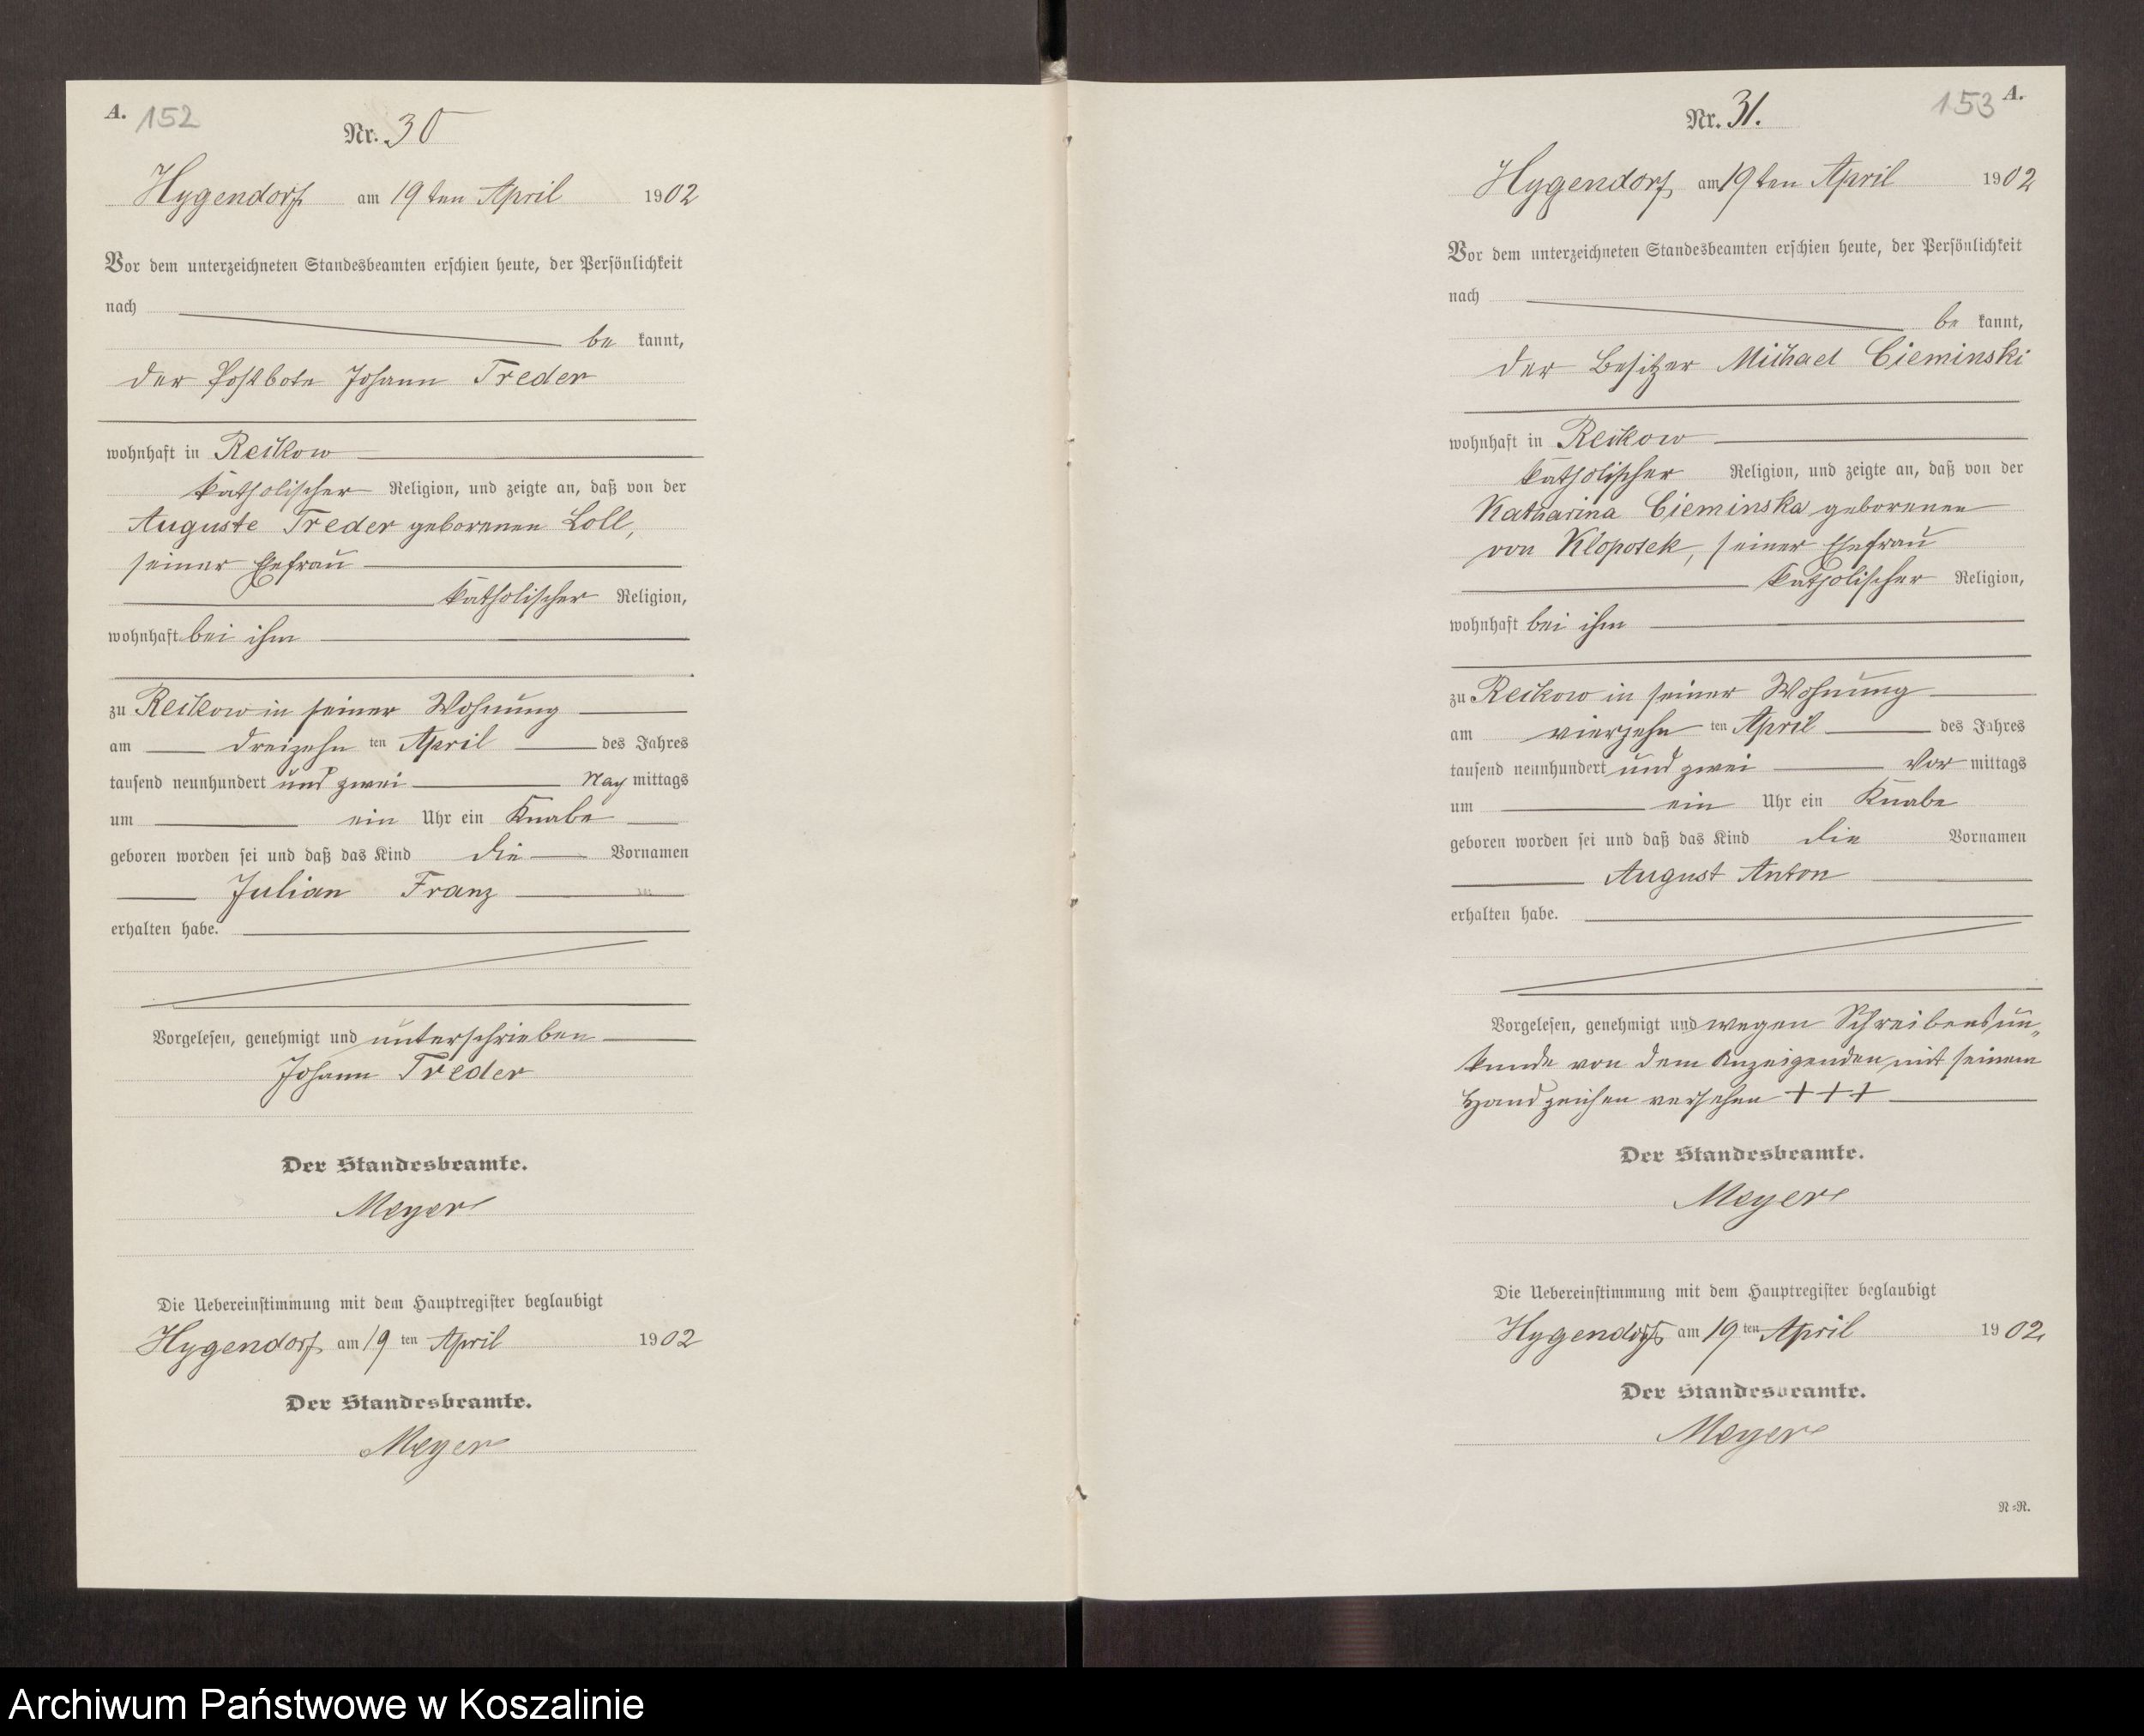 A. 152
Nr. 30
Hygendorf am 19ten April 1902
Vor dem unterzeichneten Standesbeamten erschien heute, der Persönlichkeit
nach
be kannt,
der Postbote Johann Treder
wohnhaft in Reikow
katholischer Religion, und zeigte an, daß von der
Auguste Treder geborenen Loll,
seiner Ehefrau
katholischer Religion,
wohnhaft bei ihm
zu Reikow in seiner Wohnung
am dreizehn ten April des Jahres
tausend neunhundert und zwei Nach mittags
um ein Uhr ein Knabe
geboren worden sei und daß das Kind die Vornamen
Julian Franz
erhalten habe.
Vorgelesen, genehmigt und unterschrieben
Johann Treder
Der Standesbeamte.
Meyer
Die Uebereinstimmung mit dem Hauptregister beglaubigt
Hygendorf am 19 ten April 1902
Der Standesbeamte.
Meyer
153 A.
Nr. 31.
Hygendorf am 19ten April 1902
Vor dem unterzeichneten Standesbeamten erschien heute, der Persönlichkeit
nach
be kannt,
der Besitzer Michael Cieminski
wohnhaft in Reikow
katholischer Religion, und zeigte an, daß von der
Katharina Cieminska geborenen
von Kloposek, seiner Ehefrau
katholischer Religion,
wohnhaft bei ihm
zu Reikow in seiner Wohnung
am vierzehn ten April des Jahres
tausend neunhundert und zwei Vor mittags
um ein Uhr ein Knabe
geboren worden sei und daß das Kind die Vornamen
August Anton
erhalten habe.
Vorgelesen, genehmigt und wegen Schreibensun-
kunde von dem Anzeigenden mit seinem
Handzeichen versehen +++
Der Standesbeamte.
Meyer
Die Uebereinstimmung mit dem Hauptregister beglaubigt
Hygendorf am 19 ten April 1902
Der Standesbeamte.
Meyer
N=R.
Archiwum Państwowe w Koszalinie